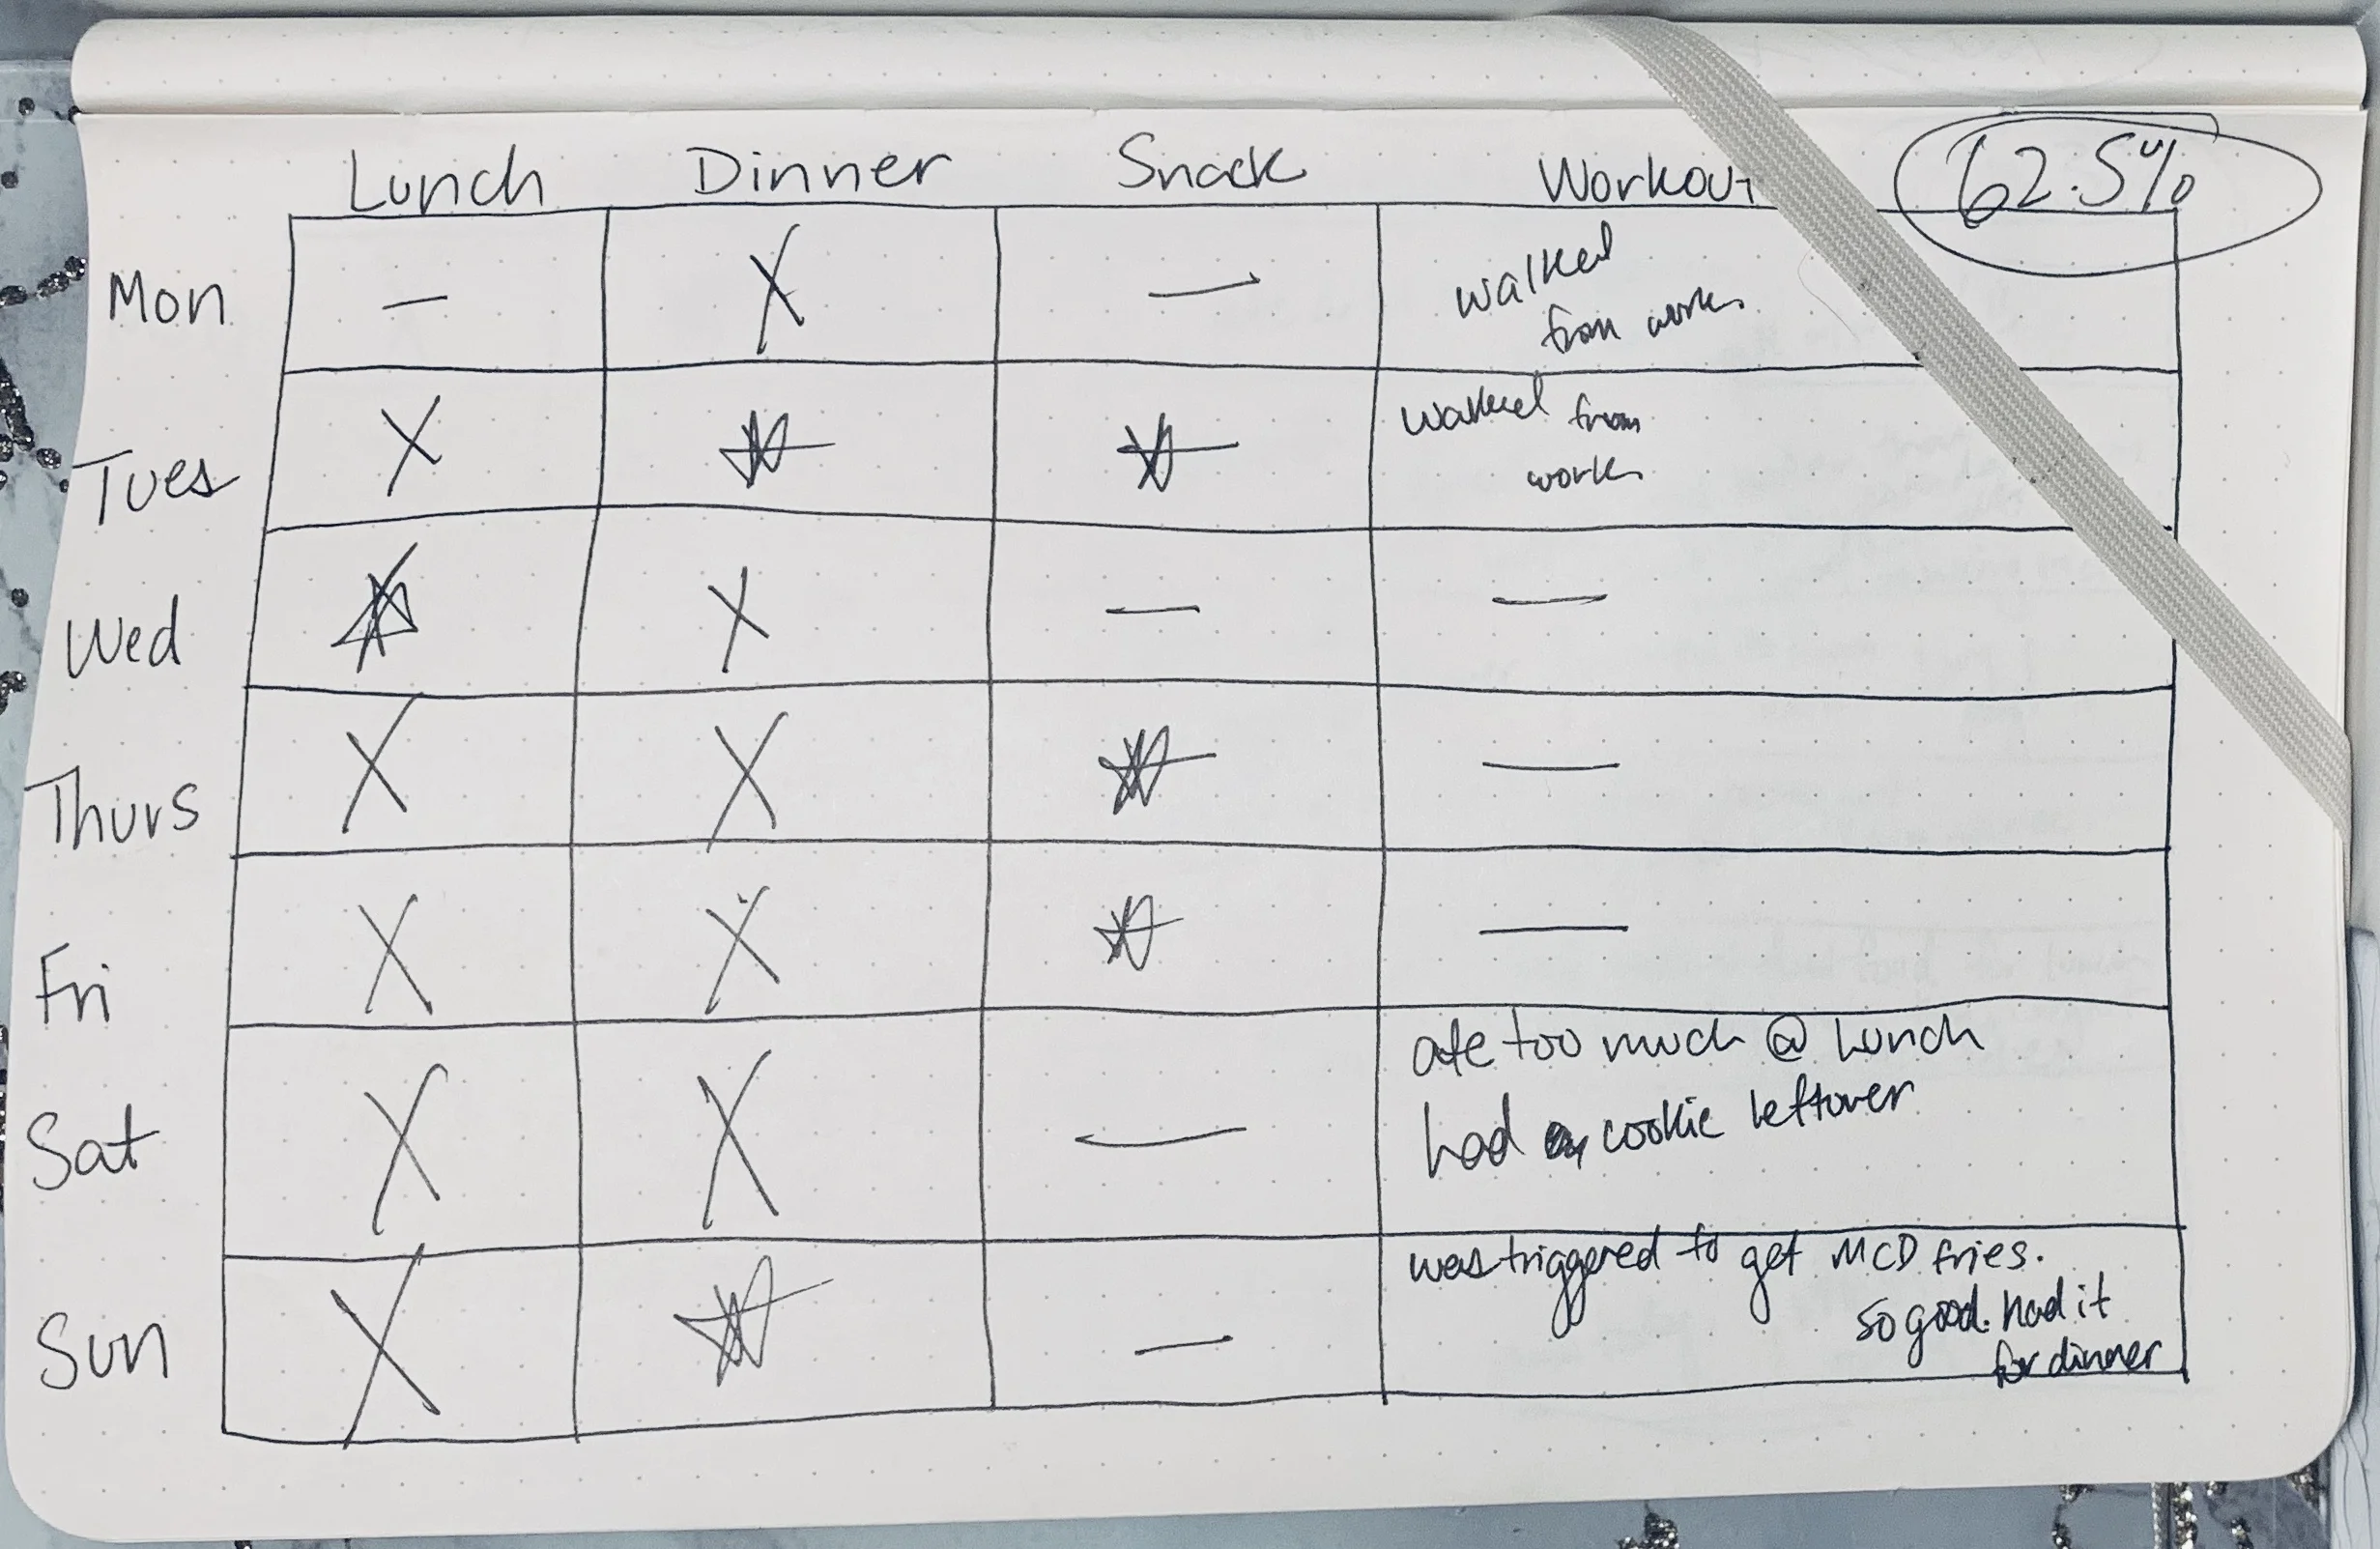 Lunch Dinner Snack Workout 62.5%
Mon — X — walked
from work
Tues X walked from
work
Wed X — —
Thurs X X —
Fri X X —
Sat X X — ate too much @ Lunch
had cookie leftover
Sun X — was triggered to get MCD fries.
so good. had it
for dinner